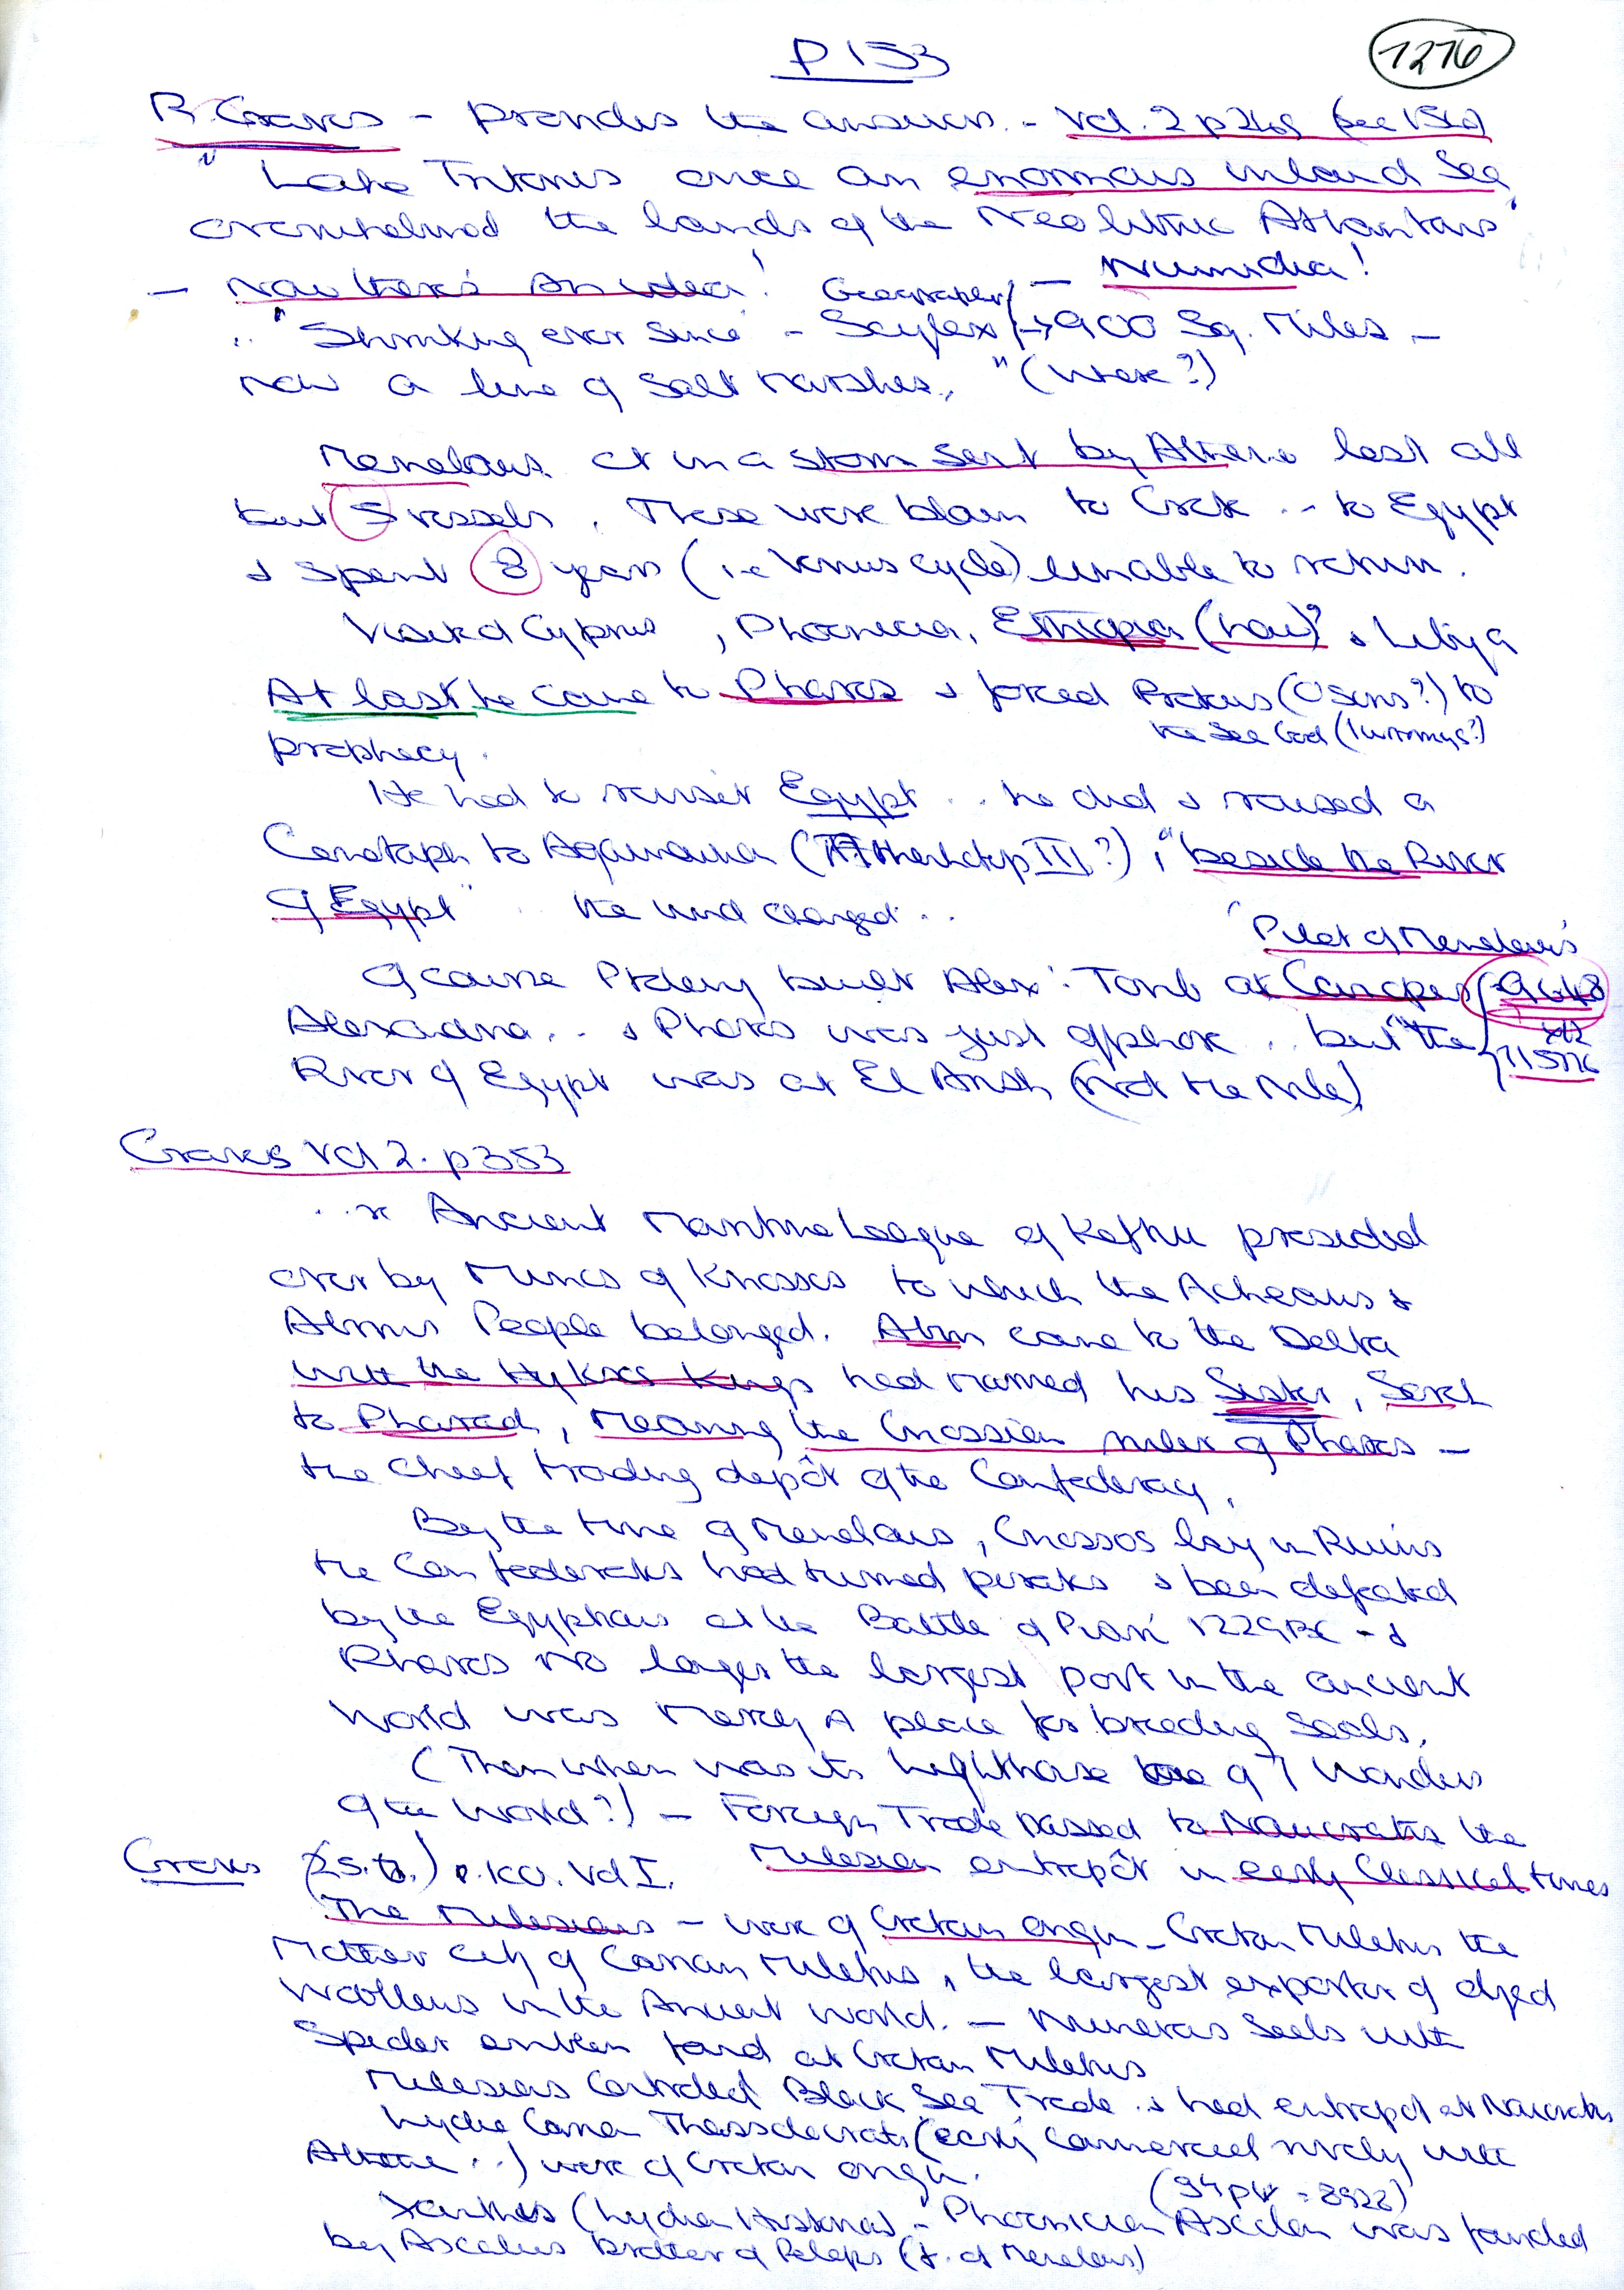 P 153
1276
R. Graves – provides the answer. – Vol. 2 p 269 (sec 159)
" Lake Tritonis once an enormous inland Sea,
overwhelmed the lands of the Neolithic Atlantans"
– Now there's An idea! – Numidia!
.. "Shrinking ever since" – Geographer Scylax → 900 Sq. Miles –
now a line of Salt marshes." (where?)
Menelaus in a storm sent by Athene lost all
but 5 vessels. These were blown to Crete ... to Egypt
& spent 8 years (i.e Venus cycle) unable to return.
Visited Cyprus, Phoenicia, Ethiopia (how)? & Libya
At last he came to Pharos & forced Proteus (Osiris?) to
the Sea God
prophecy.
He had to revisit Egypt .. he did & raised a
Cenotaph to Agamemnon (III?), "beside the River
of Egypt" .. the wind changed ..
"Pilot of Menelaus
Of course Ptolemy built Alex: Tomb at Canopus
Alexandria .. & Pharos was just offshore .. but "the
River of Egypt was at El Arish (Not the Nile)
Graves Vol 2. p 353
... Ancient Maritime League of Keftiu presided
over by Minos of Knossos to which the Acheans &
People belonged. Abm came to the Delta
with the Hyksos Kings had married his Sister, Sarah
to Pharaoh, Meaning the Cnossian ruler of Pharos –
the chief trading depôt of the Confederacy.
By the time of Menelaus, Cnossos lay in Ruins
the Confederates had turned pirates & been defeated
by the Egyptians at the Battle of Piari 1229 BC – &
Pharos no longer the largest port in the ancient
World was merely A place for breeding Seals.
(Then when was its lighthouse one of 7 Wonders
of the World?) – Foreign Trade passed to Naucratis the
Milesian entrepôt in early Classical times
Graves (25.6.) p. 100. Vol I.
The Milesians – were of Cretan origin – Cretan Miletus the
Mother City of Carian Miletus, the largest exporter of dyed
Woollens in the Ancient World. – Numerous Seals with
Spider emblem found at Cretan Miletus
Milesians Controlled Black Sea Trade & had entrepot at Naucratis
Lydia Carian Thassalocrats (early commercial rivalry with
Athene ..) were of Cretan origin.
(94 pw = 8928)
Xanthos (Lydian Historian) – Phoenician Ascalon was founded
by Ascalus brother of Pelops (f. of Menelaus)